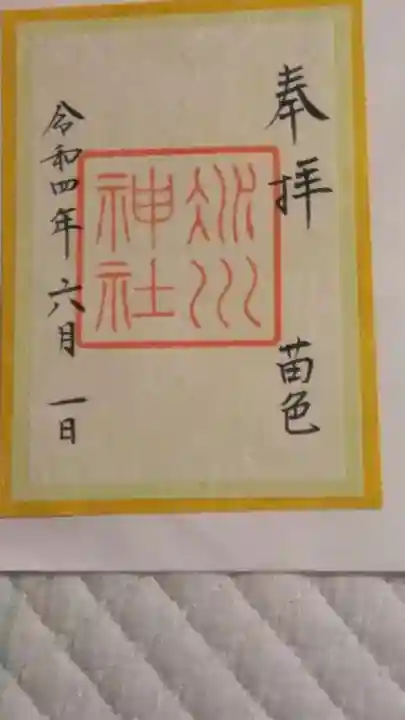 奉拝
苗色
氷川
神社
令和四年 六月 一日